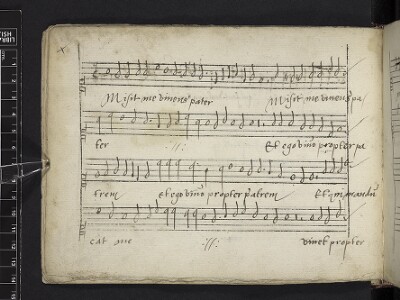 Misit me vivens pater Misit me vivens pa
ter :||: Et ego vivo propter pa
trem et ego vivo propter patrem Et qui mandu
cat me :||: vivet propter